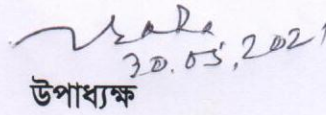 30.05.2021
উপাধ্যক্ষ